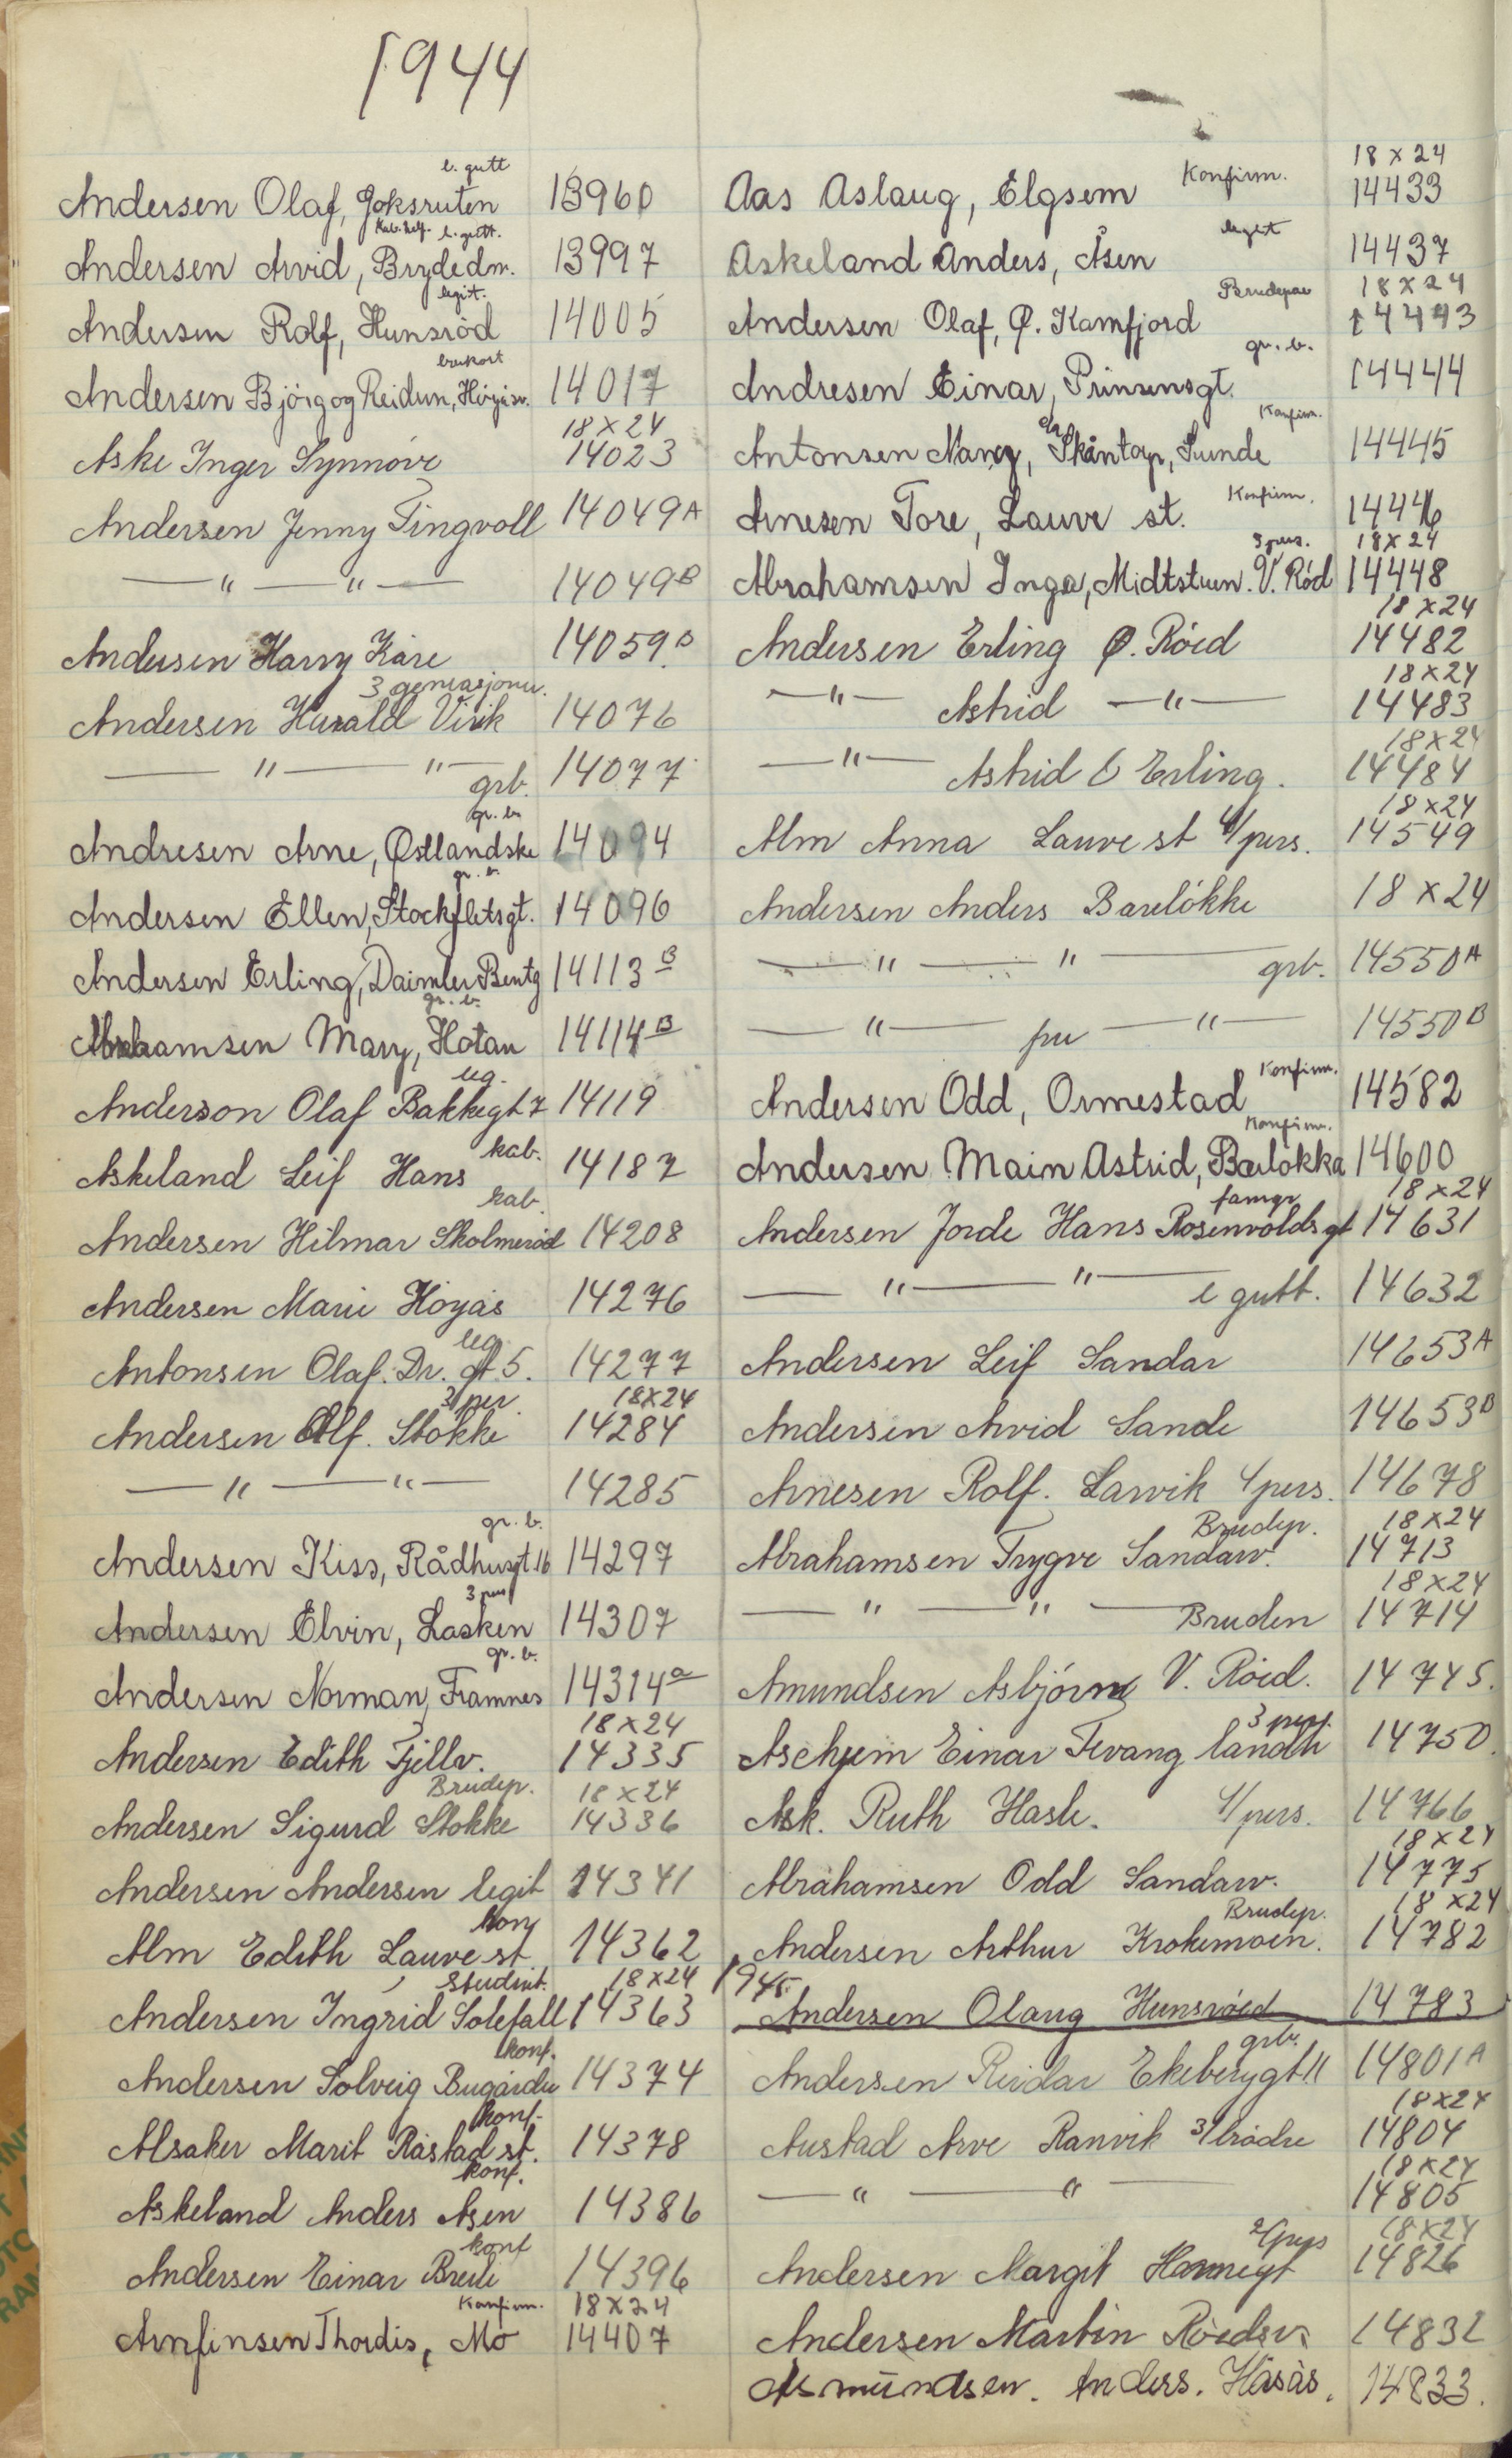 1944
l. gutt
Andersen Olaf, Goksruten 13960
Kab. helf. l. gutt.
Andersen Arvid, Brydedm. 13997
legit.
Andersen Rolf, Hunsröd 14005
brukort
Andersen Björg og Reidun, Höyåsv. 14017
18 x 24
Aske Inger Synnöve 14023
Andersen Jenny Tingvoll 14049A
— " — " — 14049B
Andersen Harry Kåre 14059B
3 generasjoner.
Andersen Harald Virik 14076
— " — " — grb. 14077
gr. b.
Andresen Arne, Østlandske 14094
gr. b.
Andersen Ellen, Stockfletsgt. 14096
Andersen Erling, Daimler Bentz 14113B
gr. b.
Abrahamsen Mary, Hotan 14114B
leg.
Anderson Olaf Bakkegt 7 14119
kab.
Askeland Leif Hans 14187
kab.
Andersen Hilmar Skolmeröd 14208
Andersen Marie Höyås 14276
leg.
Antonsen Olaf. Dr. gt 5. 14277
3 per. 18x24
Andersen Alf. Stokke 14284
— " — " — 14285
gr. b.
Andersen Kiss, Rådhusgt 16 14297
3 pers
Andersen Elvin, Lasken 14307
gr. b.
Andersen Norman, Framnes 14314a
18x24
Andersen Edith Fjellv. 14335
Brudep. 18x24
Andersen Sigurd Stokke 14336
Andersen Andersen legit 14341
konf
Alm Edith Lauve st. 14362
Student. 18x24
Andersen Ingrid Solefall 14363
konf.
Andersen Solveig Bugården 14374
konf.
Alsaker Marit Råstad st. 14378
konf.
Askeland Anders Åsen 14386
konf
Andersen Einar Breili 14396
Konfirm. 18x24
Arnfinsen Thordis, Mo 14407
18 x 24
Aas Aslaug, Elgsem Konfirm. 14433
legit
Askeland Anders, Åsen 14437
Brudepar 18x24
Andersen Olaf, Ø. Kamfjord 14443
gr. b.
Andresen Einar, Prinsensgt. 14444
Konfirm.
Antonsen Nancy, Skåntorp, Sunde 14445
Arnesen Tore, Lauve st. Konfirm. 14446
3 pers. 18x24
Abrahamsen Inga, Midtstuen. V. Röd 14448
18x24
Andersen Erling Ø. Röed 14482
18x24
— " — Astrid — " — 14483
18x24
— " — Astrid & Erling. 14484
18x24
Alm Anna Lauve st 4/pers. 14549
Andersen Anders Bareløkke 18 x 24
— " — " — grb. 14550A
— " — fru — " — 14550B
Konfirm.
Andersen Odd, Ormestad 14582
Konfirm.
Andersen Main Astrid, Bærløkka 14600
famgr. 18x24
Andersen Jorde Hans Rosenvoldsgt 14631
— " — " — l gutt. 14632
Andersen Leif Sandar 14653A
Andersen Arvid Sande 14653B
Arnesen Rolf. Larvik 4/pers. 14678
Brudep. 18x24
Abrahamsen Trygve Sandarv. 14713
18x24
— " — " — Bruden 14714
Amundsen Asbjörn V. Röed. 14745.
3 pers.
Aschjem Einar Tevang landh 14750.
Ask. Ruth Hasle. 4/pers. 14766
18x24
Abrahamsen Odd Sandarv. 14775
Brudep. 18x24
Andersen Arthur Krokemoen. 14782
1945.
Andersen Olaug Hunsröed 14783
grb.
Andersen Reidar Ekebergt 11 14801A
18x24
Austad Arve Ranvik 3/brödre 14804
18x24
— " — " — 14805
2/pers 18x24
Andersen Margit Havnegt 14826
Andersen Martin Röedsv. 14832
Asmundsen. Anders. Håsås. 14833.